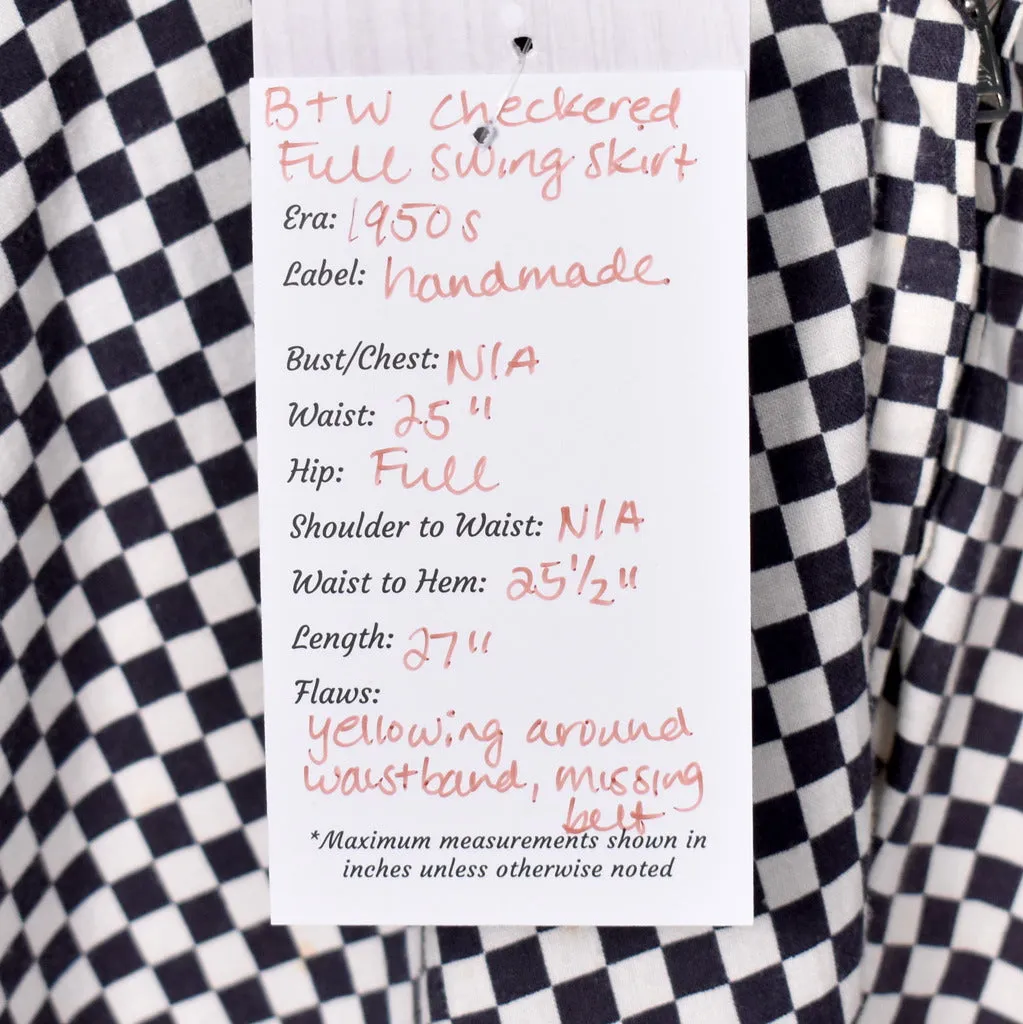 B+W checkered
Full swing skirt
Era: 1950s
Label: handmade
Bust/Chest: N/A
Waist: 25"
Hip: Full
Shoulder to Waist: N/A
Waist to Hem: 25 1/2"
Length: 27"
Flaws:
yellowing around
waistband, missing
belt
*Maximum measurements shown in
inches unless otherwise noted